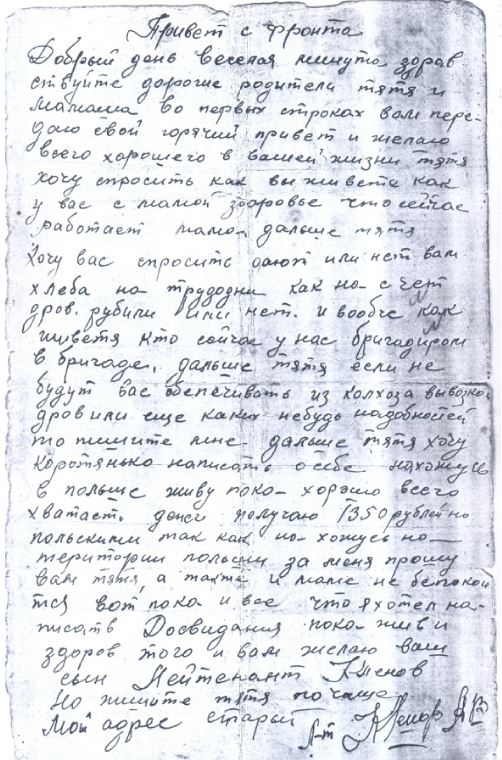 Привет с фронта
Добрый день веселая минута здрав
ствуйте дорогие родители тятя и
мамаша во первых строках вам пере-
даю свой горячий привет и желаю
всего хорошего в вашей жизни тятя
хочу спросить как вы живете как
у вас с мамой здоровье что сейчас
работает мама дальше тятя
Хочу вас спросить дают или нет вам
хлеба на трудодни как на счет
дров. рубили или нет. и вообче как
живетя кто сейчас у нас бригадиром
в бригаде, дальше тятя если не
будут вас обепечивать из колхоза вывозка
дров или еще каких небудь надобностей
то пишите мне дальше тятя хочу
коротянько написать о себе нахожусь
в польше живу пока хорошо всего
хватаеть денег получаю 1350 рублей но
польскими так как на хожусь на
територии польши за меня прошу
вам тятя, а также и маме не беспокои
тся вот пока и все что я хотел на-
писать Досвидания пока жив и
здоров того и вам желаю ваш
сын Лейтенант
Но пишите тятя по чаще
Мой адрес старый
Л-т